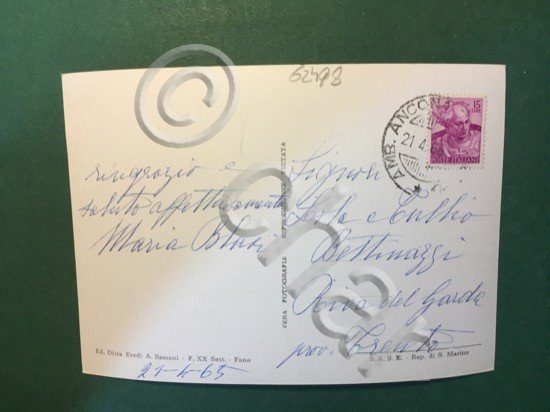 62498
ringrazio e
saluto affettuosamente
Maria
Ed. Ditta Eredi A. Bazzani - P. XX Sett. - Fano
21-4-65
VERA FOTOGRAFIA RIPRODUZIONE VIETATA
AMB. ANCONA
21.4.65
15
POSTE ITALIANE
Signori
e Tullio
Bettinazzi
Riva del Garda
prov. Trento
S. A. S. E. - Rep. di S. Marino
©